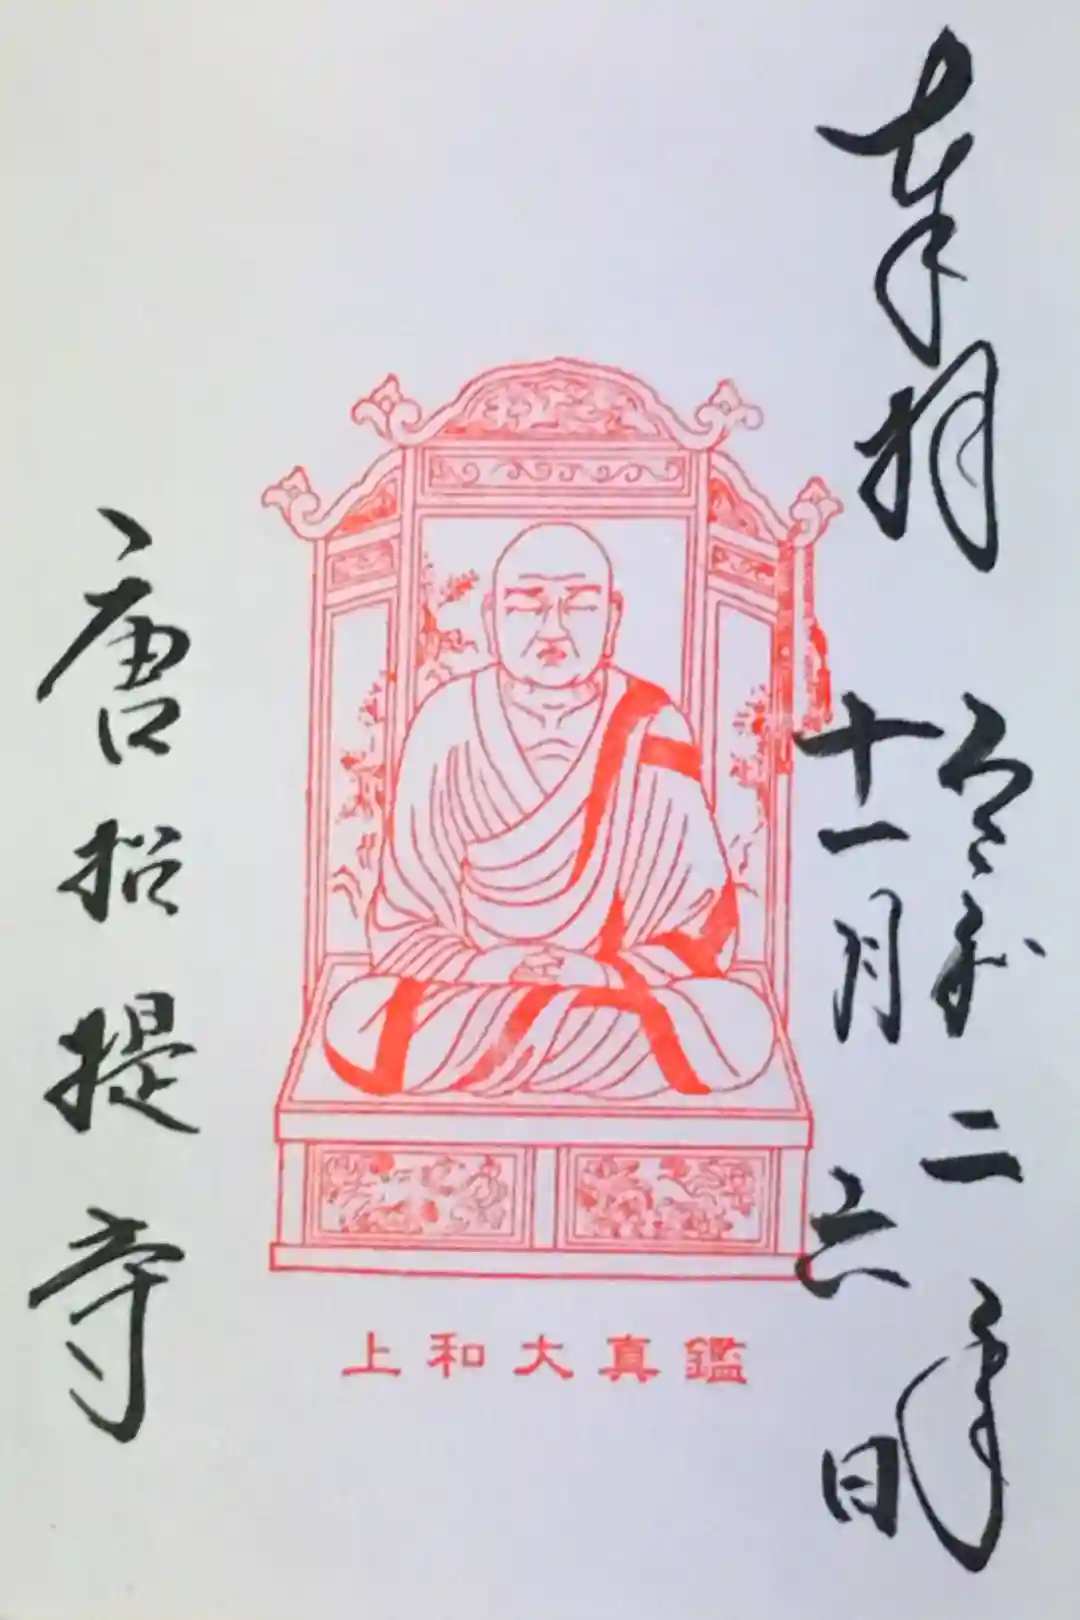 奉拝
令和二年
十一月六日
鑑真大和上
唐招提寺